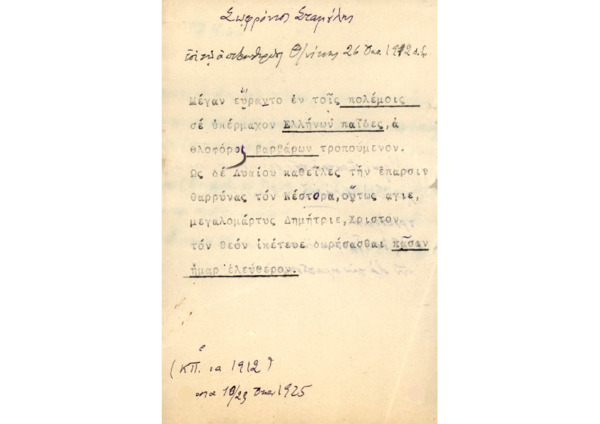 Σωφρόνιος Σταμούλης
Θ/νίκης 26 Οκτ 1912
Μέγαν εὕρατο ἐν τοῖς πολέμοις
σέ ὑπέρμαχον Ἑλλήνων παῖδες, ἀ
θλοφόρε βαρβάρων τροπούμενον.
Ως δέ Λυαίου καθεῖλες τήν ἔπαρσιν
θαρρύνας τόν Νέστορα, οὕτως ἅγιε,
μεγαλομάρτυς Δημήτριε, Χριστον
τόν Θεόν ἱκέτευε δωρήσασθαι πᾶσιν
ἧμαρ ἐλεύθερον.
(ΚΠ. ια 1912)
10/23 Οκτ 1925